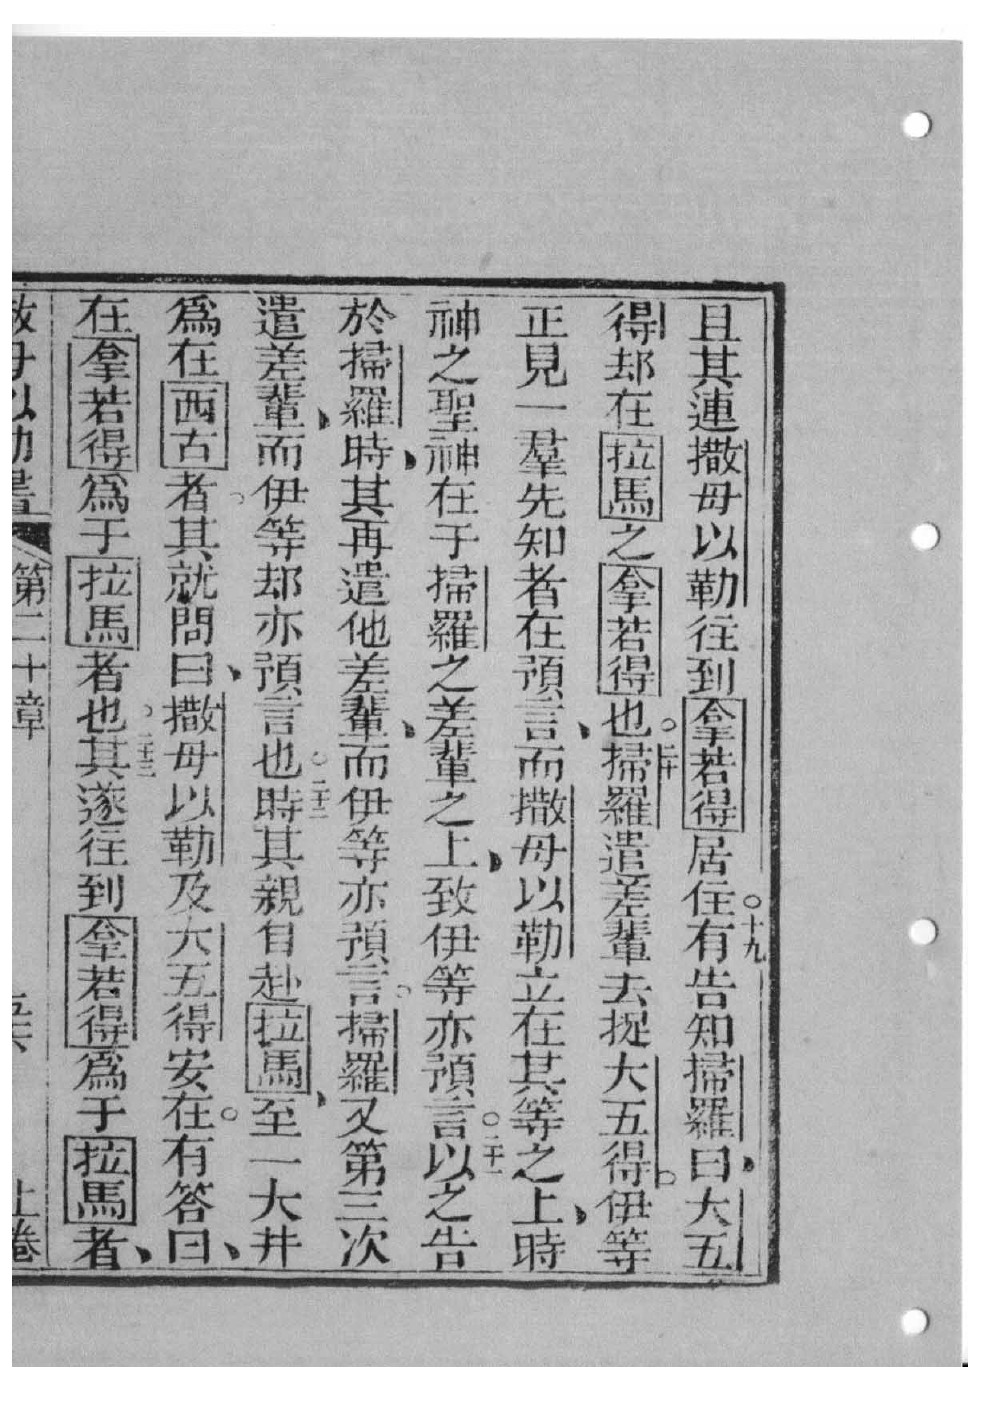 且其連撒母以勒往到拿若得居住。十九有告知掃羅曰、大五
得却在拉馬之拿若得也。二十掃羅遣差輩去捉大五得。伊等
正見一羣先知者在預言、而撒母以勒立在其等之上、時
神之聖神在于掃羅之差輩之上、致伊等亦預言。二十一以之告
於掃羅時、其再遣他差輩、而伊等亦預言。掃羅又第三次
遣差輩、而伊等却亦預言也。二十二時其親自赴拉馬、至一大井
為在西古者。其就問曰、撒母以勒及大五得安在。有答曰、
在拿若得為于拉馬者也。二十三其遂往到拿若得為于拉馬者、
撒母以勒書 第二十章 上卷